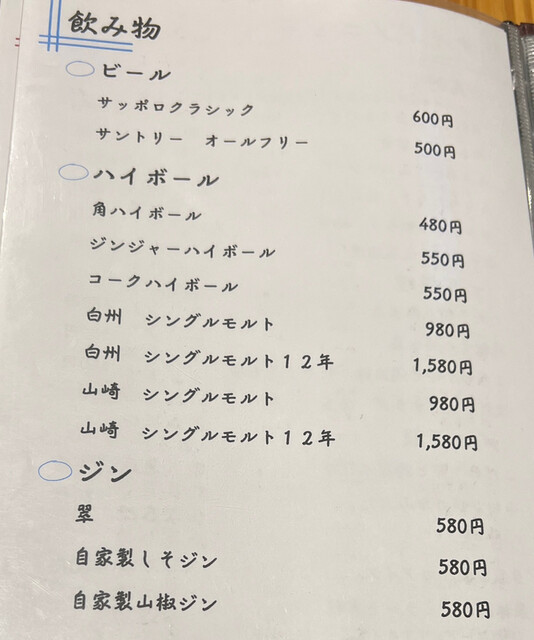 飲み物
ビール
サッポロクラシック 600円
サントリー　オールフリー 500円
ハイボール
角ハイボール 480円
ジンジャーハイボール 550円
コークハイボール 550円
白州　シングルモルト 980円
白州　シングルモルト１２年 1,580円
山崎　シングルモルト 980円
山崎　シングルモルト１２年 1,580円
ジン
翠 580円
自家製しそジン 580円
自家製山椒ジン 580円